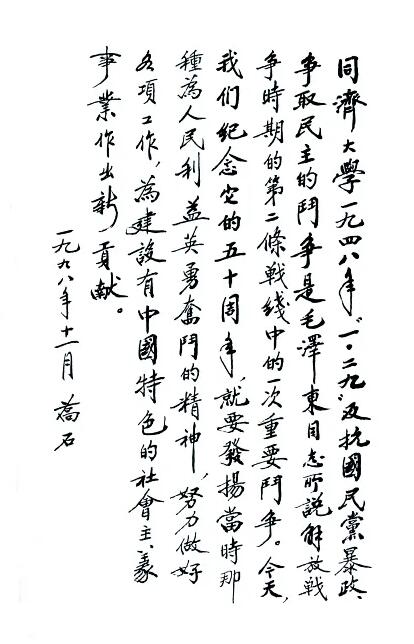 同濟大學一九四八年“一·二九”反抗國民黨暴政、
爭取民主的鬥爭是毛澤東同志所說解放戰
爭時期的第二條戰綫中的一次重要鬥爭。今天，
我们紀念它的五十周年，就要發揚當時那
種為人民利益英勇奮鬥的精神，努力做好
各項工作，為建設有中國特色的社會主義
事業作出新貢獻。
一九九八年十一月 喬石